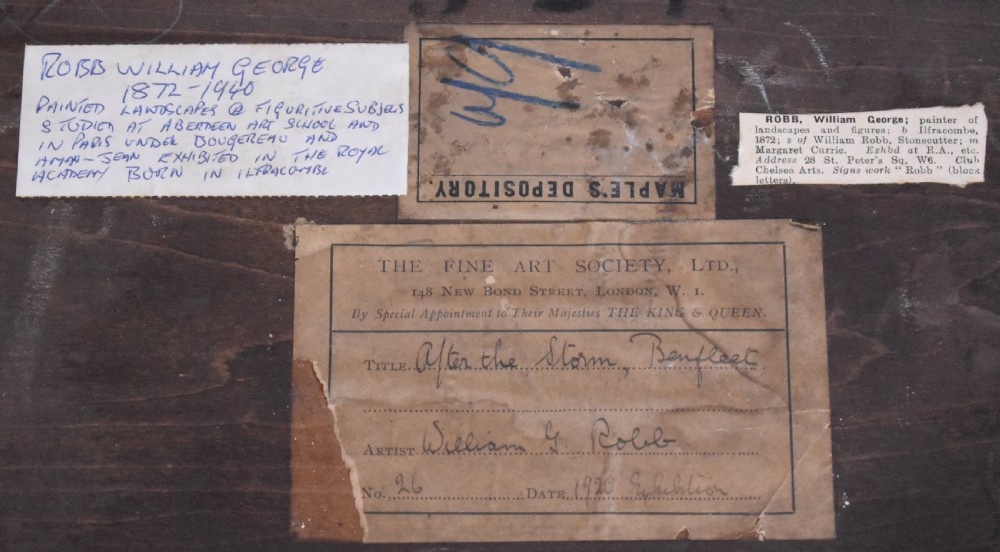 ROBB WILLIAM GEORGE
1872-1940
PAINTED LANDSCAPES @ FIGURITIVE SUBJECS
STUDIED AT ABERDEEN ART SCHOOL AND
IN PARIS UNDER BOUGEREAU AND
AMAN-JEAN EXHIBITED IN THE ROYAL
ACADEMY BORN IN ILFRACOMBE
MAPLE'S DEPOSITORY.
ROBB, William George; painter of
landscapes and figures; b Ilfracombe,
1872; s of William Robb, Stonecutter; m
Margaret Currie. Exhbd at R.A., etc.
Address 28 St. Peter's Sq, W6. Club
Chelsea Arts. Signs work "Robb" (block
letters).
THE FINE ART SOCIETY, LTD.,
148 NEW BOND STREET, LONDON, W. 1.
By Special Appointment to Their Majesties THE KING & QUEEN.
TITLE After the Storm, Benfleet
ARTIST William G Robb
No. 26 DATE 1920 Exhibition